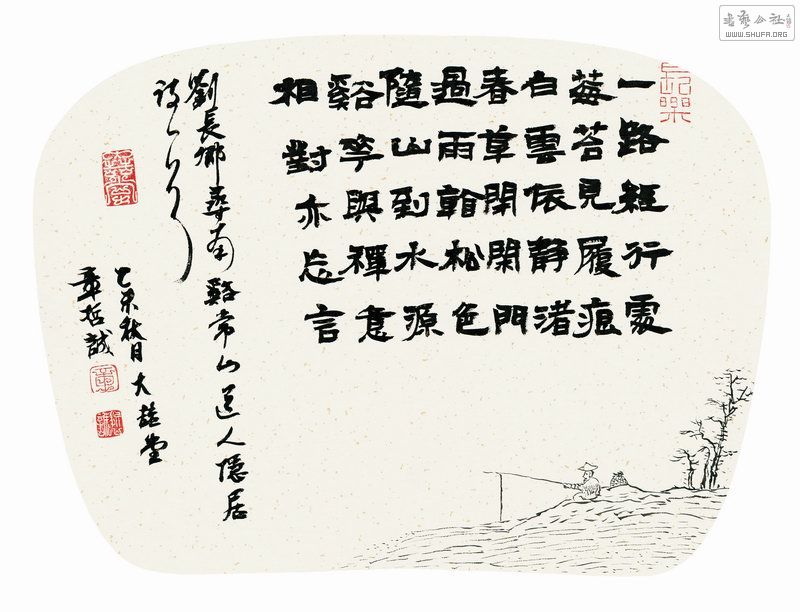 一路經行處
莓苔見履痕
白雲依靜渚
春草閉閑門
過雨看松色
隨山到水源
谿華與禪意
相對亦忘言
劉長卿尋南谿常山道人隱居
詩一首
乙未秋日大喆堂
章哲誠
長樂
書藝公社
WWW.SHUFA.ORG